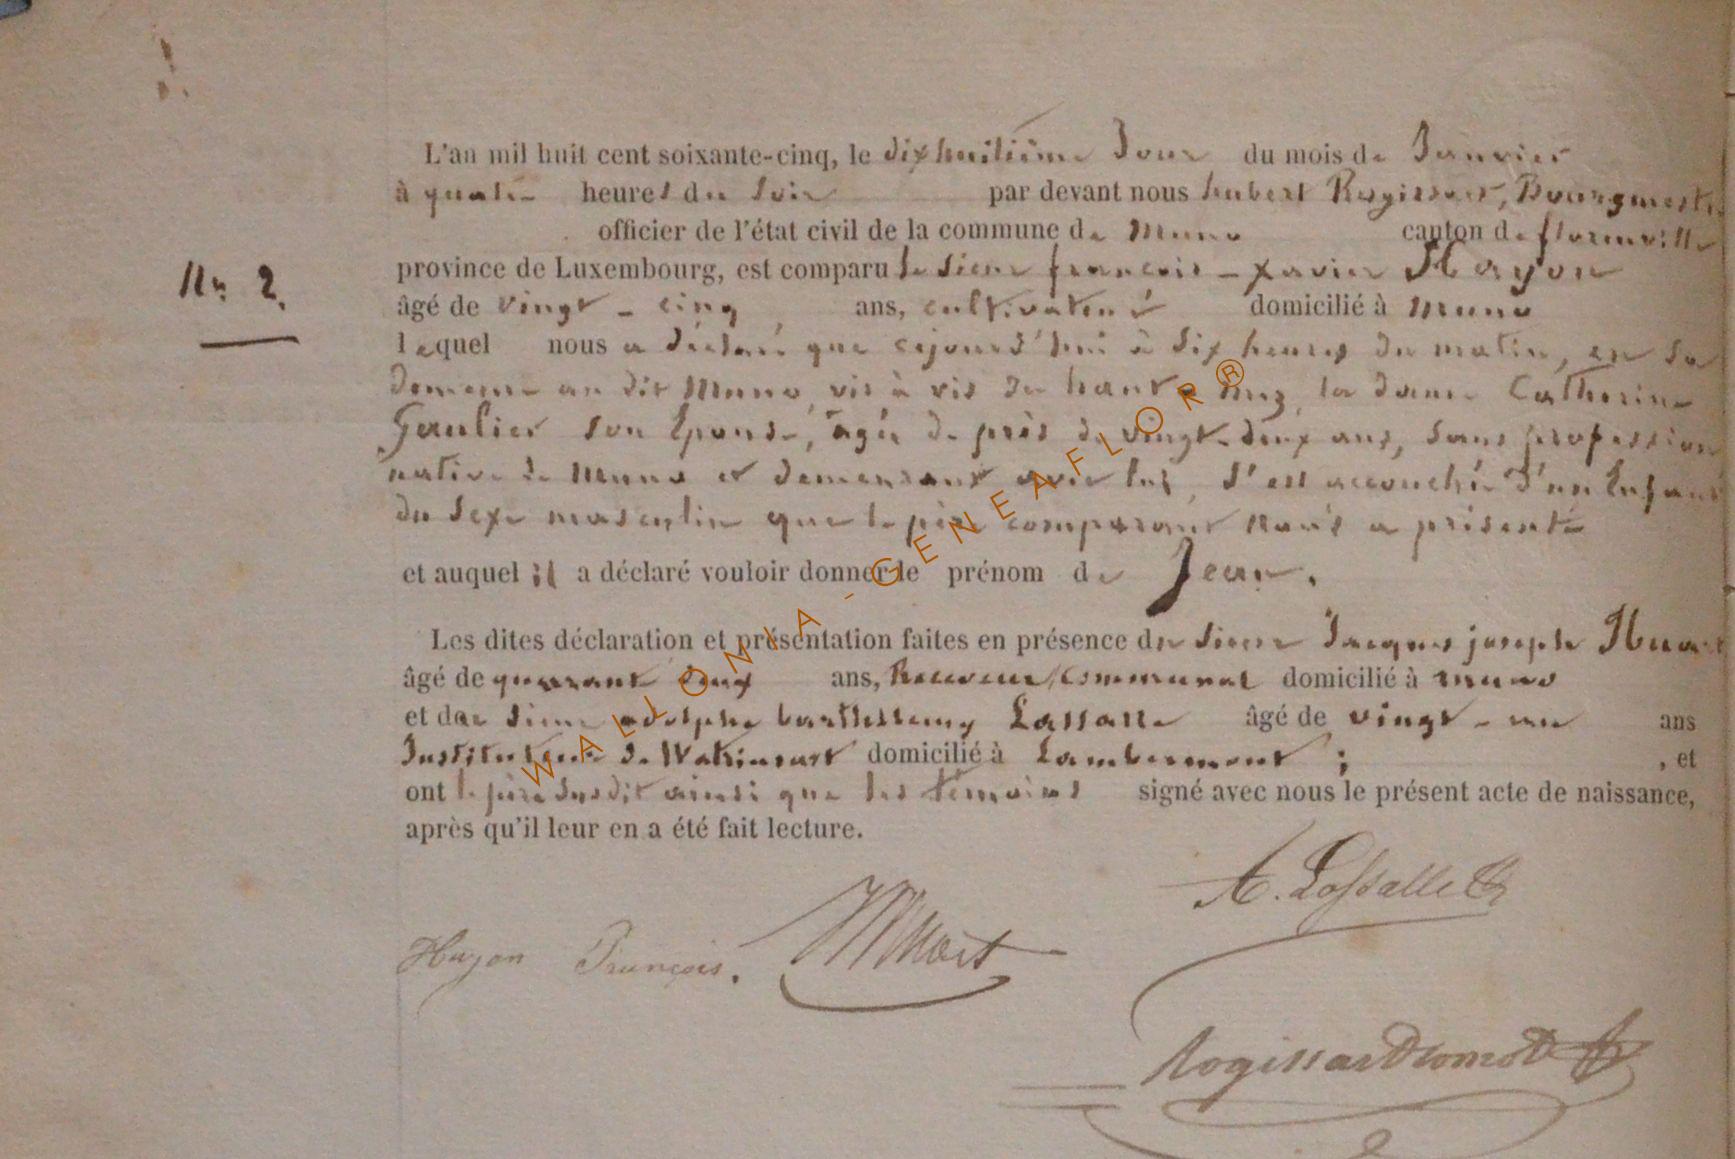 L'an mil huit cent soixante-cinq, le dixhuitième Jour du mois de Janvier
à quatre heures du soir par devant nous hubert Rogissart, Bourgmestre
officier de l'état civil de la commune de Muno canton de florenville
N° 2.
province de Luxembourg, est comparu le sieur françois-xavier Hayon
âgé de vingt-cinq ans, cultivateur domicilié à Muno
lequel nous a déclaré que cejourd'hui à six heures du matin, en sa
demeure au dit Muno, vis à vis du haut la dame Catherine
Gaulier son Epouse, âgée de près de vingt-deux ans, sans profession
native de Muno et demeurant avec lui, s'est accouchée d'un Enfant
du sexe masculin que le père comparant nous a présenté
et auquel il a déclaré vouloir donner le prénom de Jean.
Les dites déclaration et présentation faites en présence du sieur Jacques joseph Huart
âgé de quarante deux ans, Receveur communal domicilié à muno
et du sieur adolphe barthelemy Lassalle âgé de vingt-un ans
Instituteur de Watrinsart domicilié à Lambermont ; , et
ont le père susdit ainsi que les témoins signé avec nous le présent acte de naissance,
après qu'il leur en a été fait lecture.
A. Lassalle
Hayon François. Huart
Rogissart
WALLONIA-GENEAFLOR®